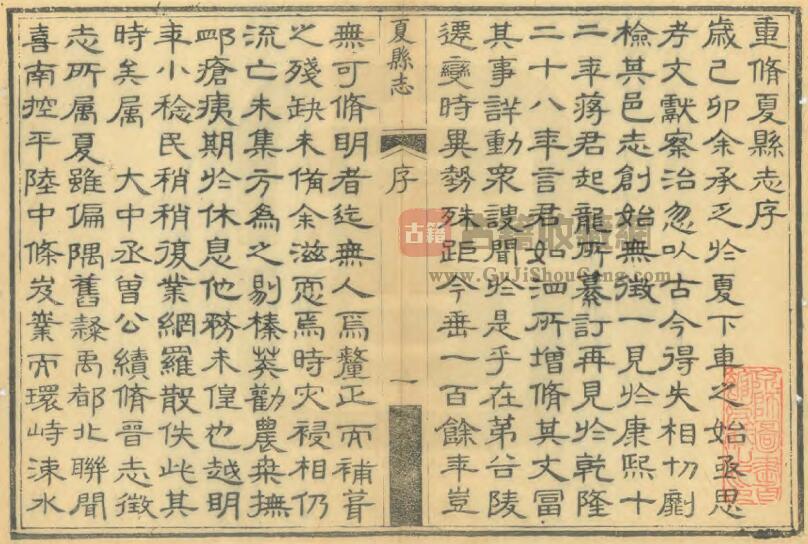 重脩夏縣志序
歲己卯余承乏於夏下車之始亟思
考文獻察治忽以古今得失相切劘
檢其邑志創始無徵一見於康熙十
二年蔣君起龍所纂訂再見於乾隆
二十八年言君如泗所增脩其文富
其事詳動衆謏聞於是乎在第谷陵
遷變時異勢殊距今垂一百餘年豈
夏縣志 序 一
無可脩明者迄無人焉釐正而補葺
之殘缺未備余滋恧焉時灾祲相仍
流亡未集方為之剔榛莽勸農桑撫
卹瘡痍期於休息他務未偟也越明
年小稔民稍稍復業網羅散佚此其
時矣属 大中丞曾公續脩晉志徵
志所属夏雖偏隅舊隸禹都北聯聞
喜南控平陸中條岌嶪而環峙涑水
古籍
古籍收藏網
www.GuJiShouCang.com
京師圖書